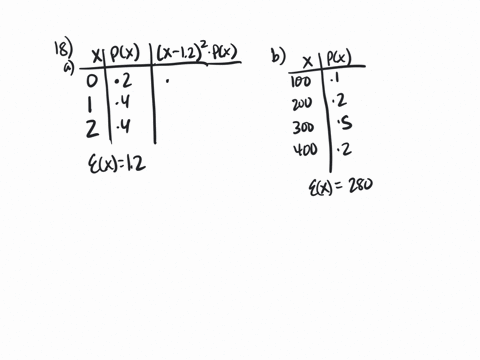 18)
a) x P(x) (x-1.2)²·P(x)
0 .2 .
1 .4
2 .4
E(x)=1.2
b) x P(x)
100 .1
200 .2
300 .5
400 .2
E(x)= 280